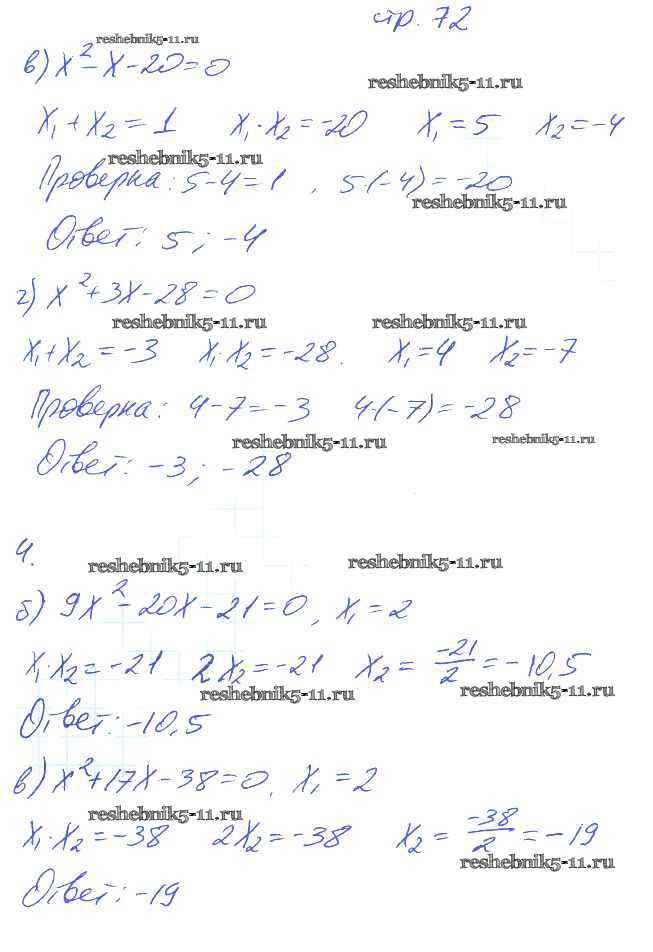 стр. 72
reshebnik5-11.ru
в) x² - x - 20 = 0
reshebnik5-11.ru
x₁ + x₂ = 1 x₁ · x₂ = -20 x₁ = 5 x₂ = -4
reshebnik5-11.ru
Проверка: 5 - 4 = 1 , 5·(-4) = -20
reshebnik5-11.ru
Ответ: 5 ; -4
г) x² + 3x - 28 = 0
reshebnik5-11.ru reshebnik5-11.ru
x₁ + x₂ = -3 x₁ · x₂ = -28. x₁ = 4 x₂ = -7
Проверка: 4 - 7 = -3 4·(-7) = -28
reshebnik5-11.ru reshebnik5-11.ru
Ответ: -3 ; -28
4.
reshebnik5-11.ru reshebnik5-11.ru
б) 9x² - 20x - 21 = 0, x₁ = 2
x₁ · x₂ = -21 2x₂ = -21 x₂ = -21/2 = -10,5
reshebnik5-11.ru reshebnik5-11.ru
Ответ: -10,5
в) x² + 17x - 38 = 0, x₁ = 2
reshebnik5-11.ru
x₁ · x₂ = -38 2x₂ = -38 x₂ = -38/2 = -19
reshebnik5-11.ru
Ответ: -19